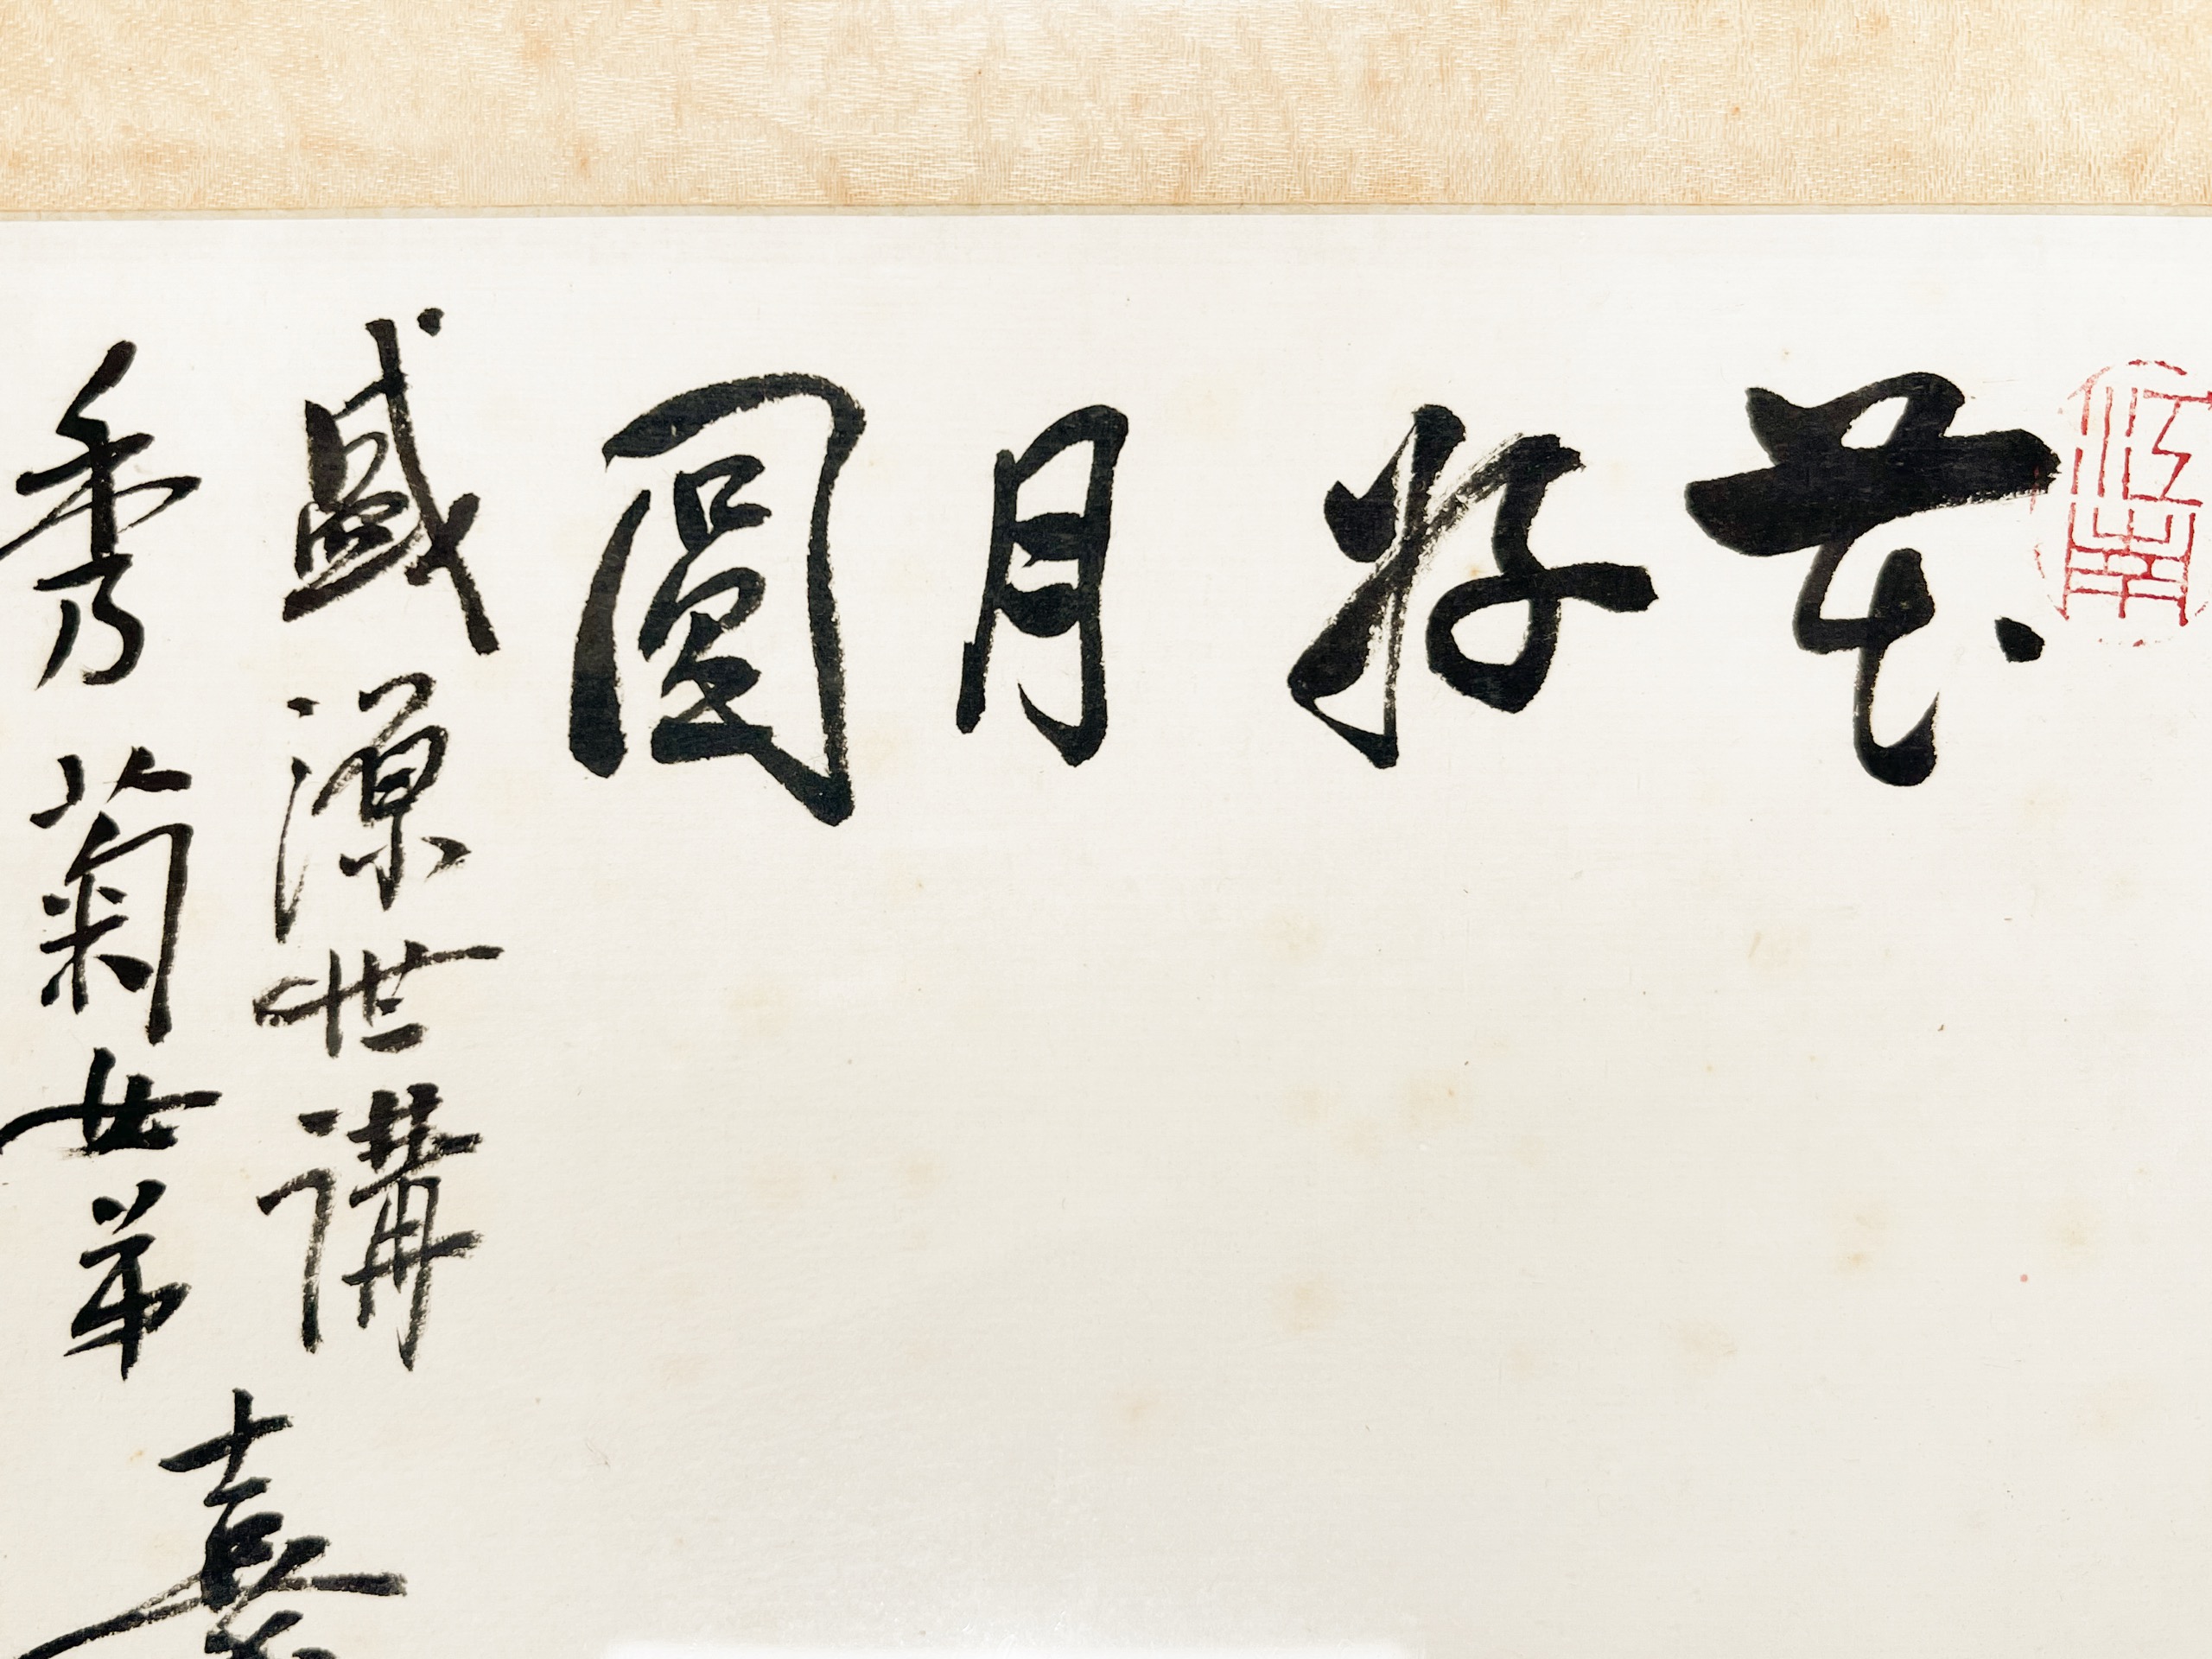 江南
花好月圓
盛源世講
秀菊女弟
嘉